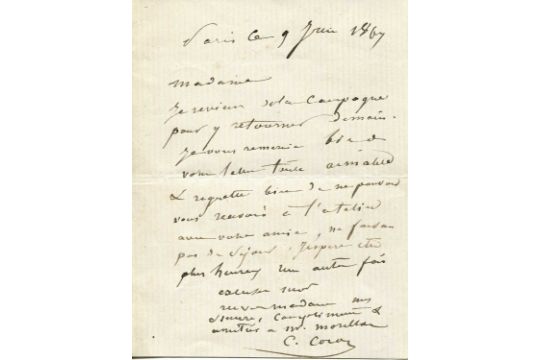 Paris ce 9 Juin 1867
Madame
Je reviens de la Campagne
pour y retourner Demain.
Je vous remercie bien de
votre lettre toute aimable
& regrette bien de ne pouvoir
vous recevoir à l'atelier
avec votre amie, ne faisant
pas de séjour. J'espère être
plus heureux une autre fois
excusez moi
recevez madame mes
sincères Compliments &
amitiés à mr.
C. Corot